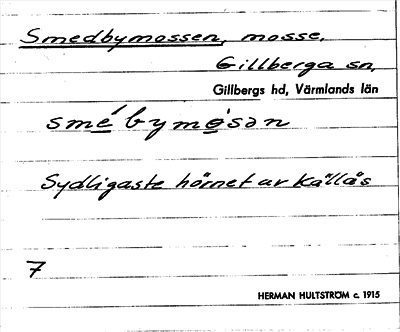 Smedbymossen, mosse.
Gillberga sn,
Gillbergs hd, Värmlands län
smé bymòsan
Sydligaste hörnet av Källås
7
HERMAN HULTSTRÖM c. 1915